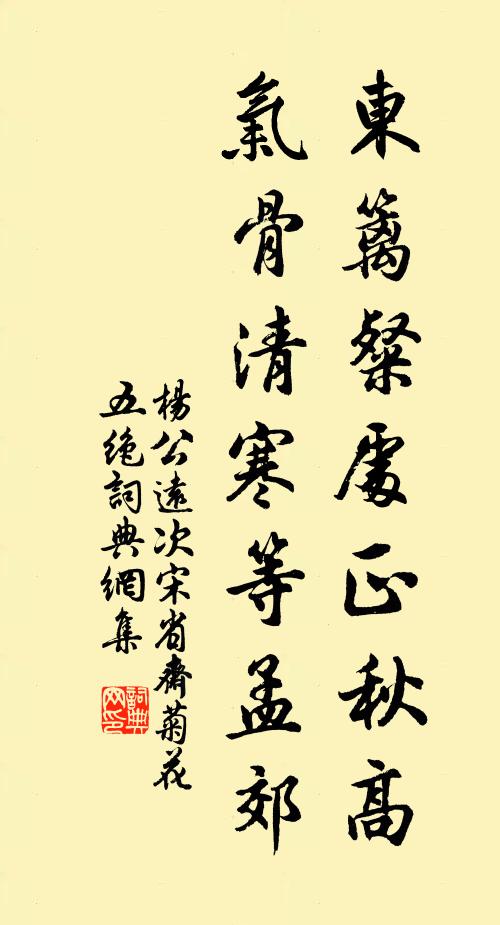 東籬粲處正秋高
氣骨清寒等孟郊
楊公遠次宋省齋菊花
五絶詞典網集
詞典网印